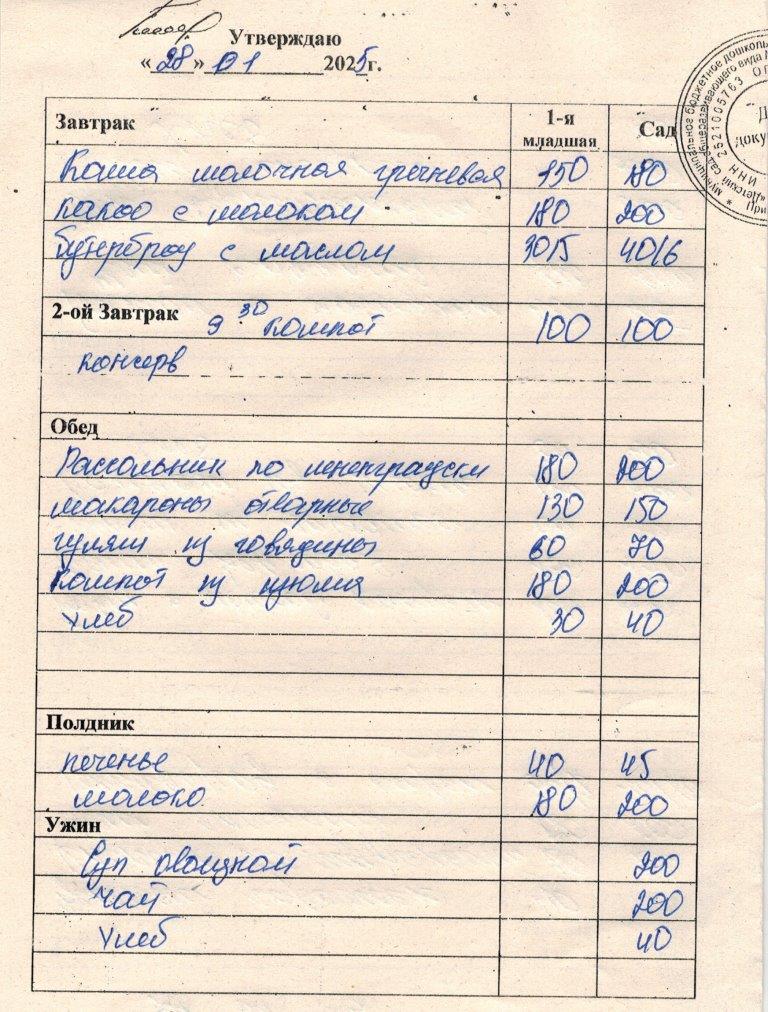 Утверждаю
«28» 01 2025г.
Завтрак 1-я младшая Сад
Каша молочная гречневая 150 180
какао с молоком 180 200
бутерброд с маслом 30/5 40/6
2-ой Завтрак 9 30 компот 100 100
консерв
Обед
Рассольник по ленинградски 180 200
макароны отварные 130 150
гуляш из говядины 60 70
компот из изюма 180 200
хлеб 30 40
Полдник
печенье 40 45
молоко. 180 200
Ужин
Суп овощной 200
чай 200
хлеб 40
муниципальное бюджетное дошколь
общеразвивающего вида
ИНН 2521005763
«Детский сад